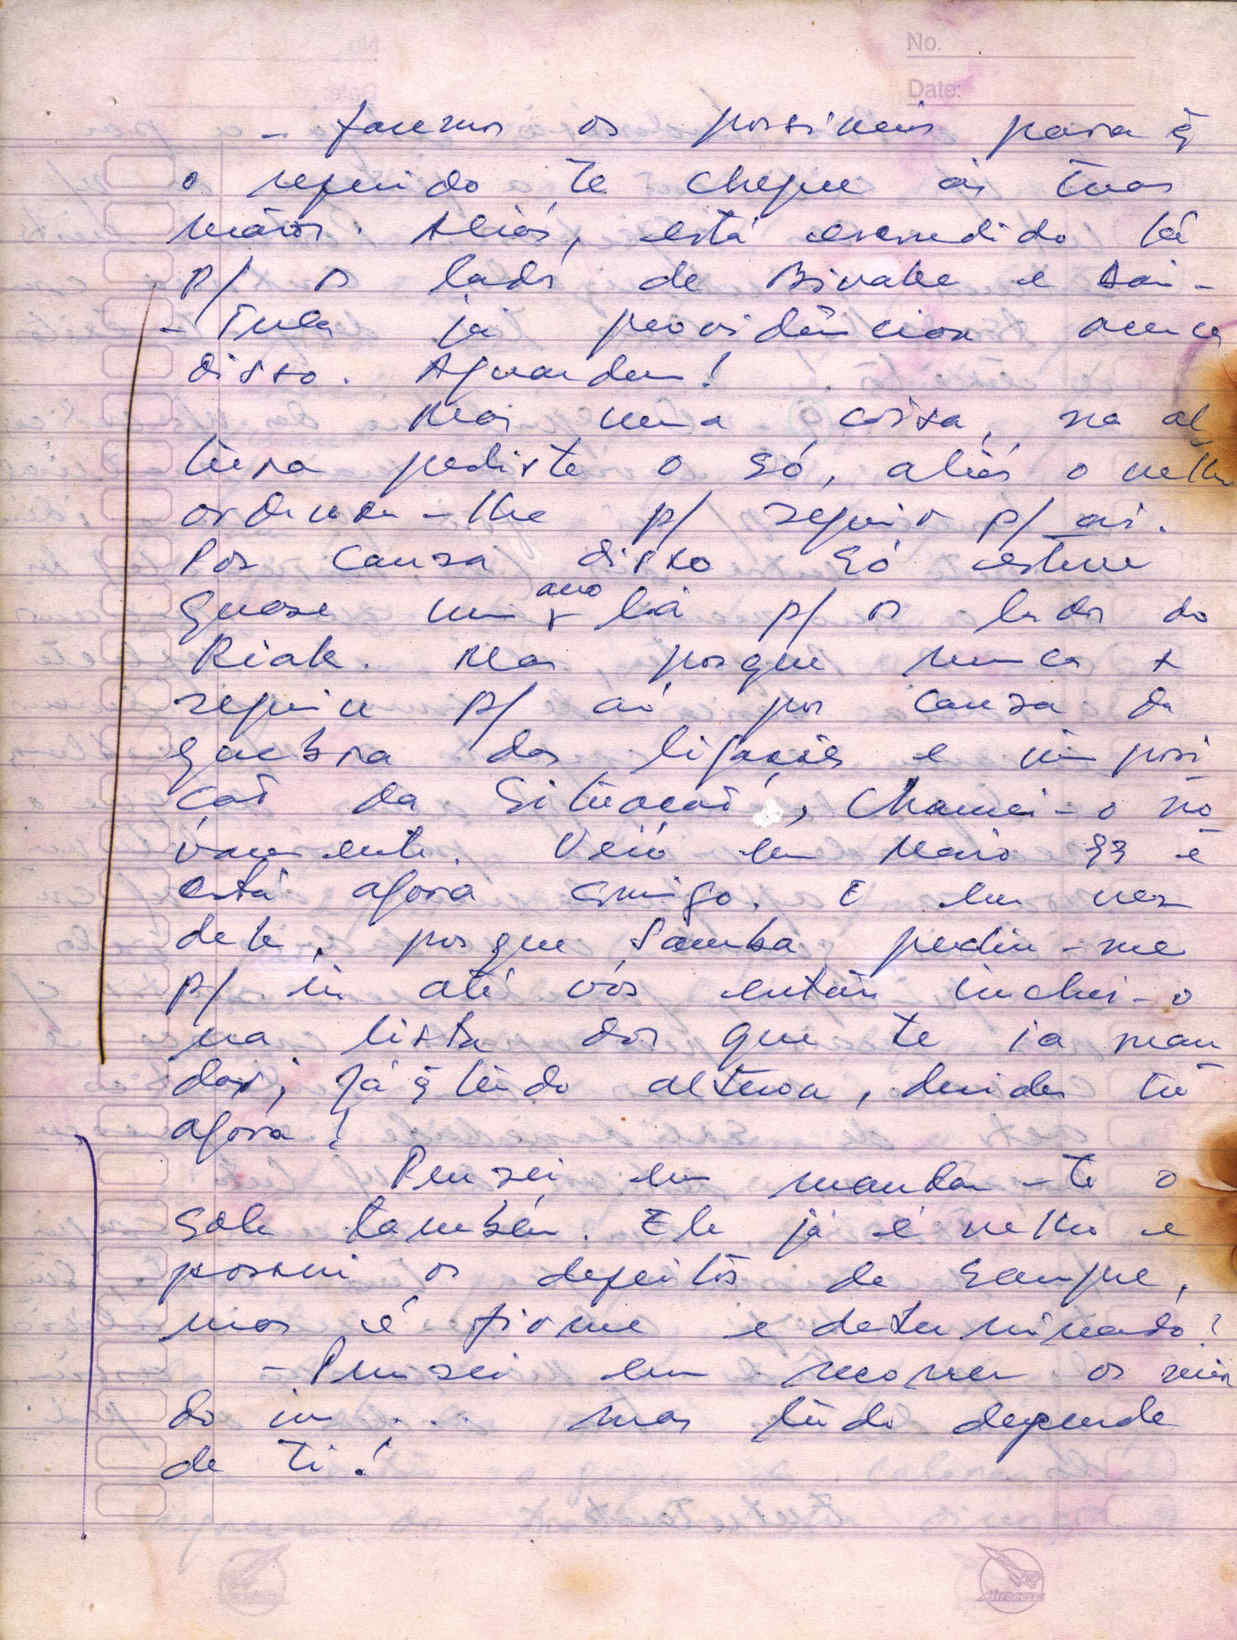 No.
Date:
- faremos os possiveis para q̃
o referido te chegue às tuas
mãos. Aliás, está escondido lá
p/ os lados de Bivake e Sai-
-Tula já providências acerca
disso. Aguardem!
Mas uma coisa, na al
tura pediste o Só, aliás o velho
ordenou-lhe p/ seguir p/ aí.
Por causa disso Só esteve
quase um ano lá p/ os lados do
Riak. Mas porque nunca +
seguiu p/ aí por causa da
quebra das ligações e imposi
ção da Situação, Chamei-o no
vamente. Veio em Maio 99 e
está agora comigo. E em vez
dele, porque Samba pediu-me
p/ ir até vós então inclui-o
na lista dos que te ia man
dar; já q̃ tudo alterou, decides tu
agora!
Pensei em mandar-te o
Sole também. Ele já é velho e
possui os defeitos de sempre,
mas é firme e determinado!
- Pensei em recorrer os
do im... mas tudo depende
de ti!